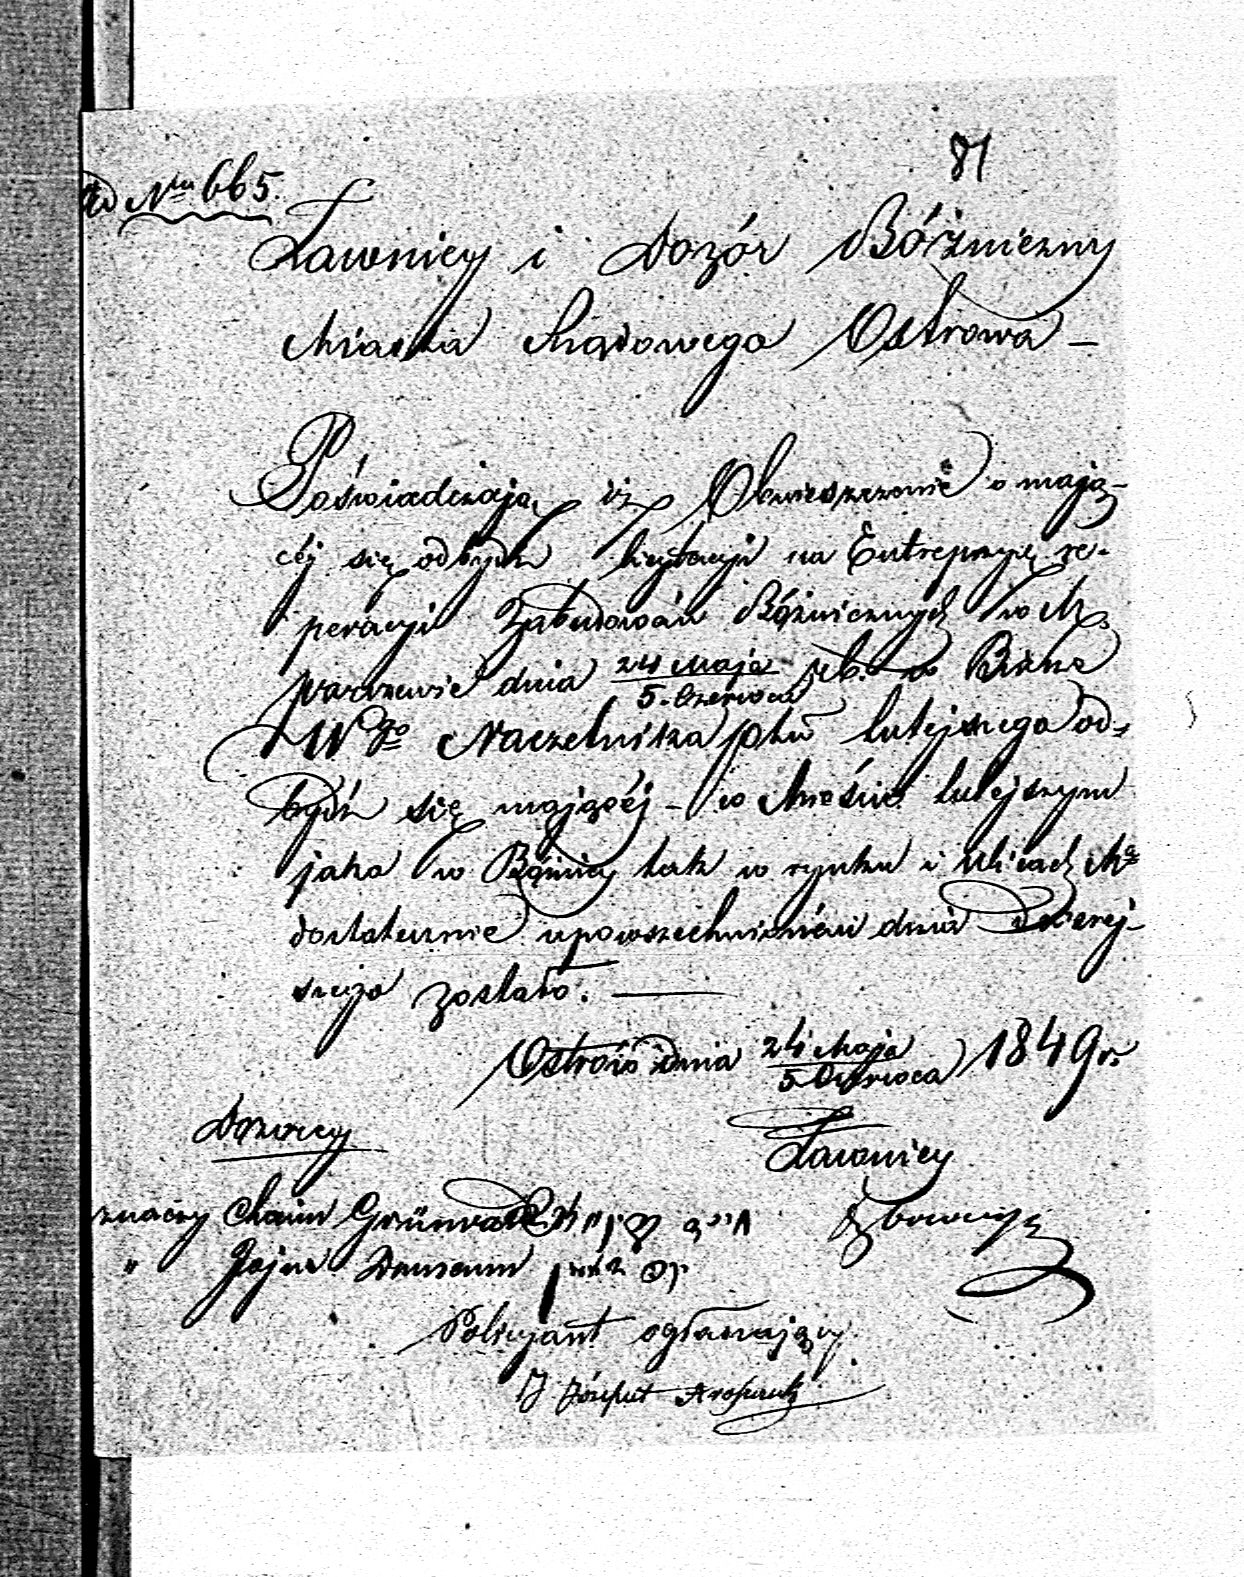 81
ad Nrm 665.
Ławnicy i Dozór Bóżniczny
Miasta Rządowego Ostrowa –
Poświadczają iż Obwieszczenie o mają-
céj się odbydź licytacyi na Entrepryzę re-
peracyi Zabudowań Bóżnicznych w M.
dnia 24 Maja / 5. Czerwca r. b. w Biórze
Wgo Naczelnika ptu tutejszego od-
bydź się mającéj – w Mieście tutejszym
jako w Bóżnicy tak w rynku i ulicach Mta
dostatecznie upowszechnioném dnia dzisiej-
szego zostało. —
Ostrów dnia 24 Maja / 5 Czerwca 1849 r.
Dozorcy
Ławnicy
znaczy Chaim Grünwald חיים
" Dansam
Policyant ogłaszający
Józefat